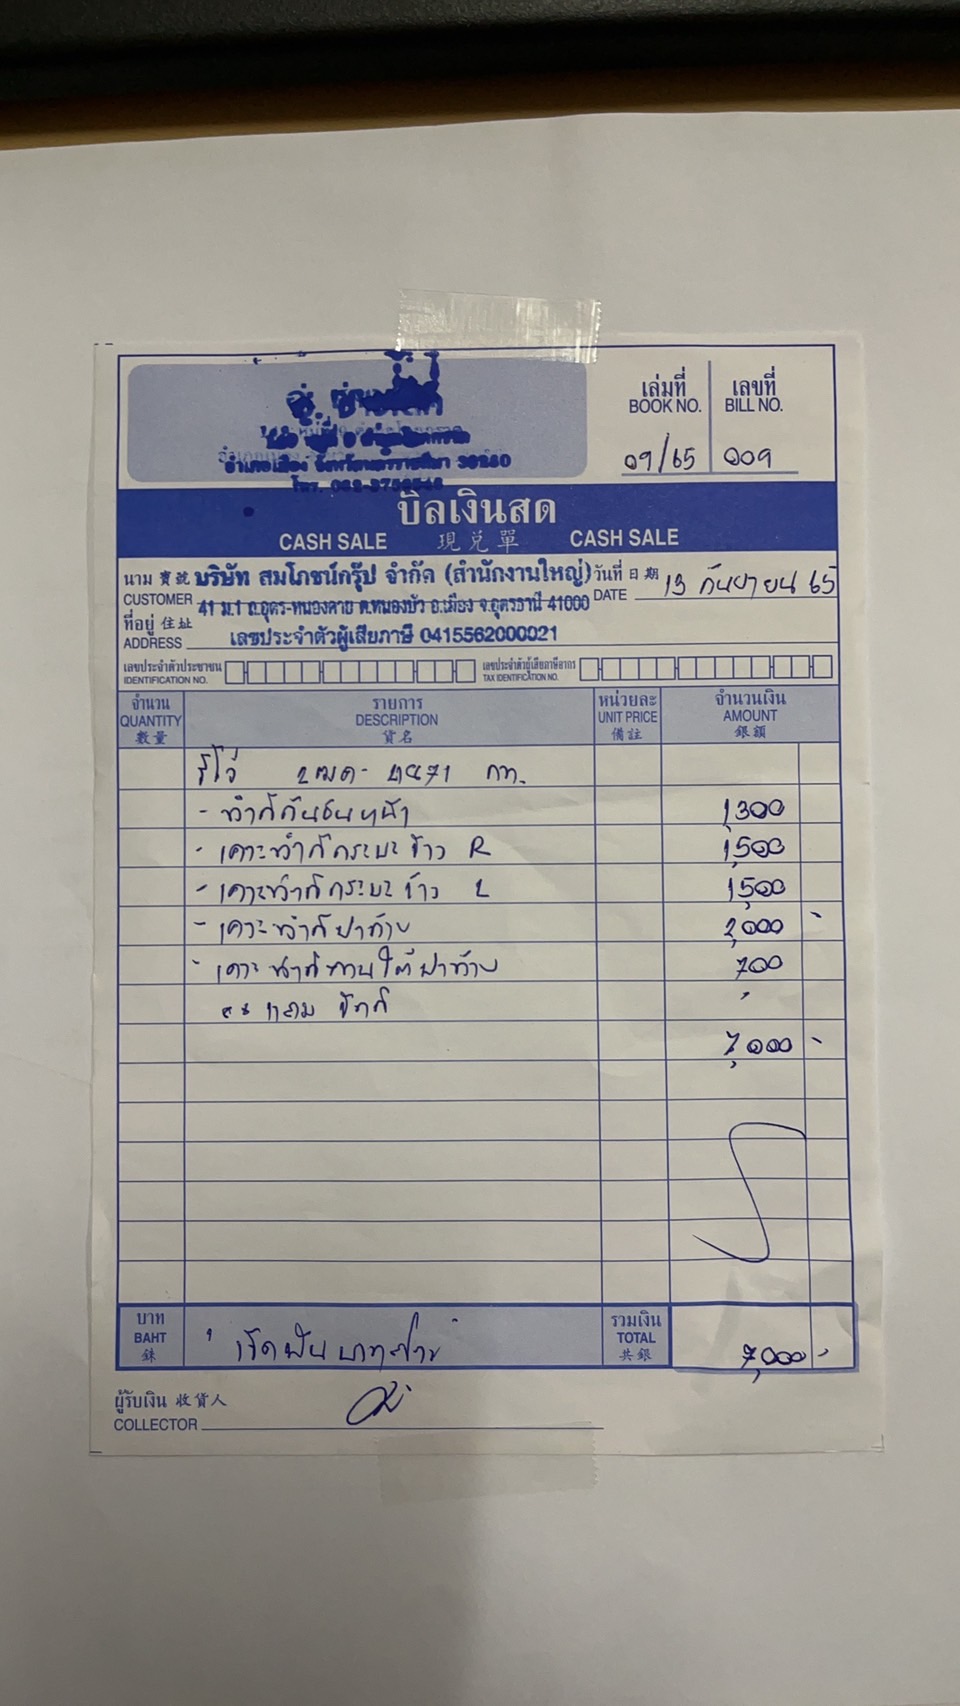 เล่มที่ เลขที่
BOOK NO. BILL NO.
09/65 009
อำเภอเมือง จังหวัดนครราชสีมา 30260
โทร.
บิลเงินสด
CASH SALE 現兌單 CASH SALE
นาม 寶號 บริษัท สมโภชน์กรุ๊ป จำกัด (สำนักงานใหญ่) วันที่ 日期
CUSTOMER 41 ม.1 ถ.อุดร-หนองคาย ต.หนองบัว อ.เมือง จ.อุดรธานี 41000 DATE 13 กันยายน 65
ที่อยู่ 住址
ADDRESS เลขประจำตัวผู้เสียภาษี 0415562000021
เลขประจำตัวประชาชน เลขประจำตัวผู้เสียภาษีอากร
IDENTIFICATION NO. TAX IDENTIFICATION NO.
จำนวน รายการ หน่วยละ จำนวนเงิน
QUANTITY DESCRIPTION UNIT PRICE AMOUNT
數量 貨名 備註 銀額
รีโว่ 2ฒด- กท.
- ทำสีกันชนหน้า 1,300
- เคาะทำสีกระบะข้าง R 1,500
- เคาะทำสีกระบะข้าง L 1,500
- เคาะทำสีฝาท้าย 2,000 -
- เคาะ ใต้ฝาท้าย 700
แถม ขัดสี
7,000 -
บาท รวมเงิน
BAHT เจ็ดพันบาทถ้วน TOTAL 7,000 -
銖 共銀
ผู้รับเงิน 收貨人
COLLECTOR